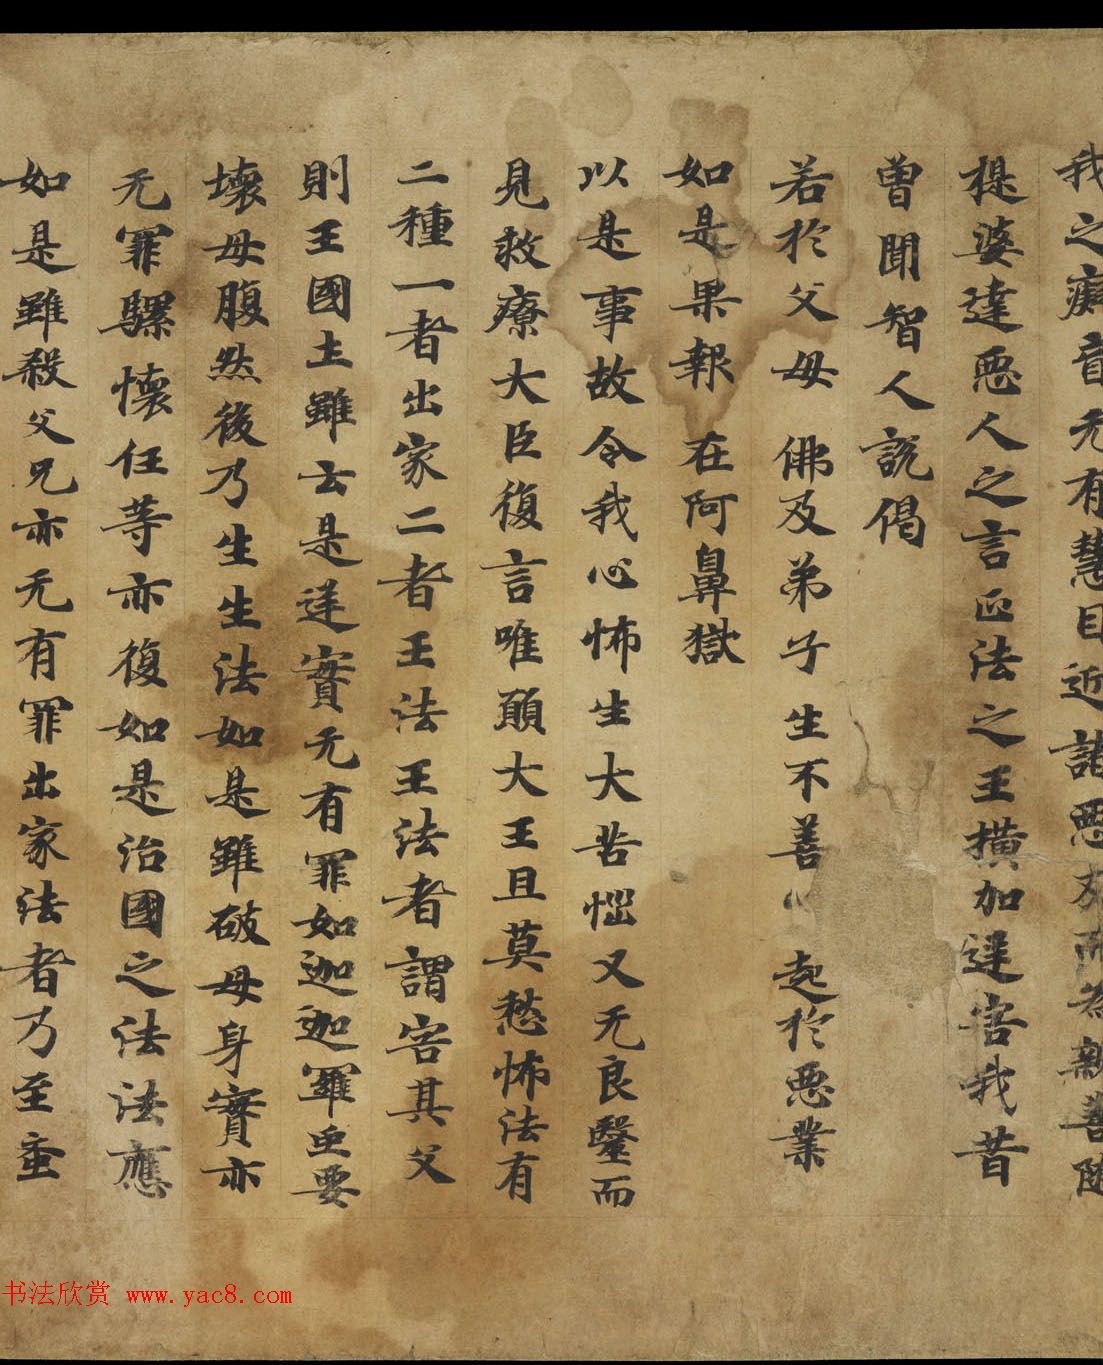 我之癡盲无有慧目近諸惡友而為親善隨
提婆達惡人之言正法之王橫加逆害我昔
曾聞智人說偈
若於父母 佛及弟子 生不善心 起於惡業
如是果報 在阿鼻獄
以是事故令我心怖生大苦惱又无良毉而
見救療大臣復言唯願大王且莫愁怖法有
二種一者出家二者王法王法者謂害其父
則王國土雖云是逆實无有罪如迦迦羅虫要
壞母腹然後乃生生法如是雖破母身實亦
无罪騾懷任等亦復如是治國之法法應
如是雖殺父兄亦无有罪出家法者乃至蚉
书法欣赏 www.yac8.com